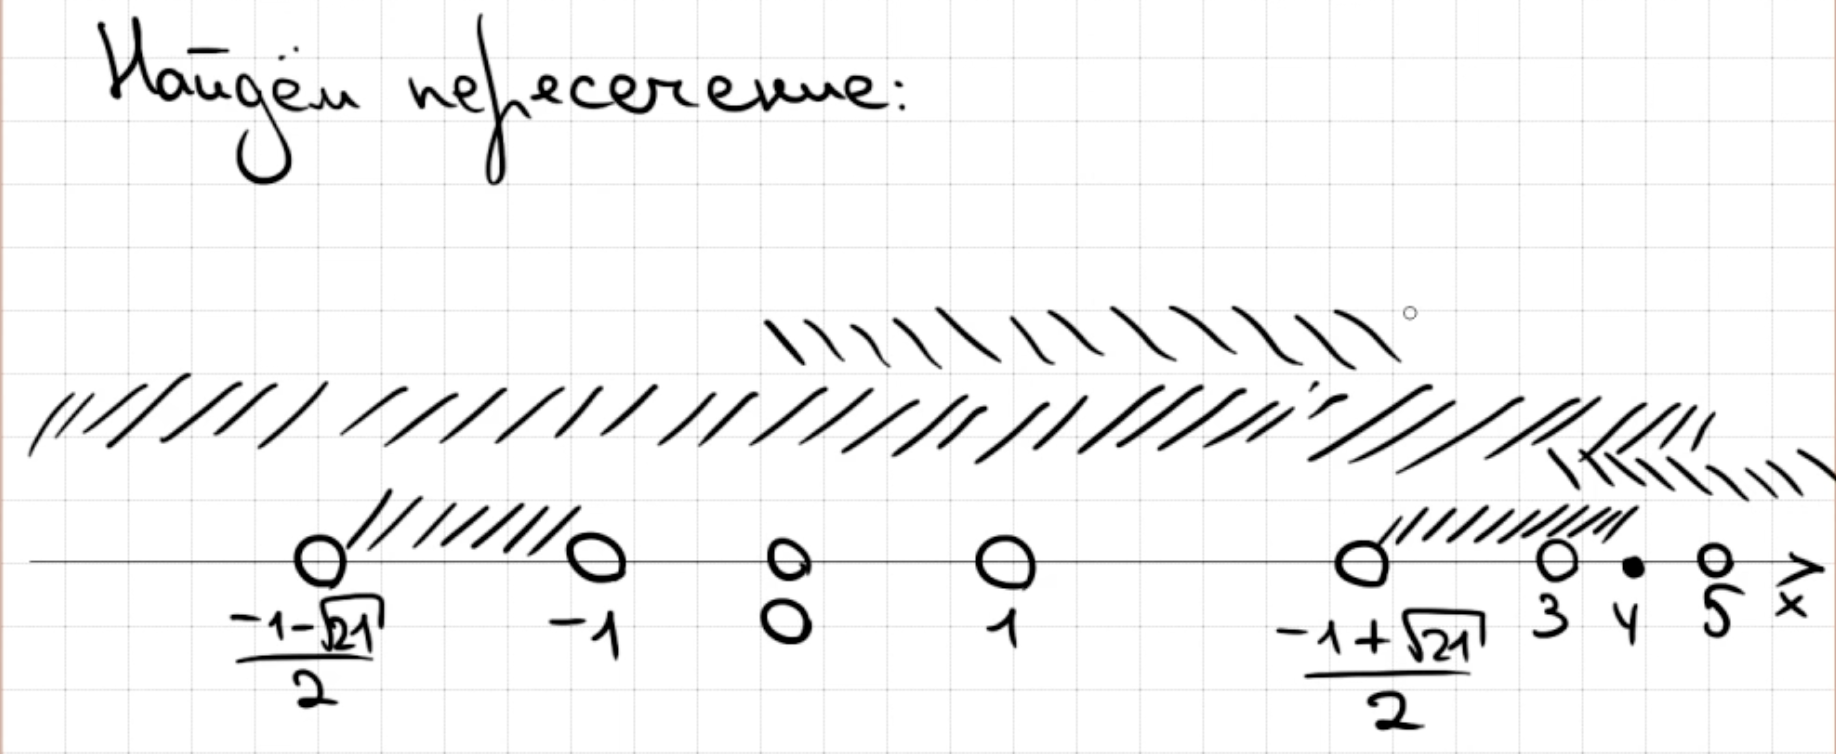 Найдём пересечение:
(-1-√21)/2 -1 0 1 (-1+√21)/2 3 4 5 x